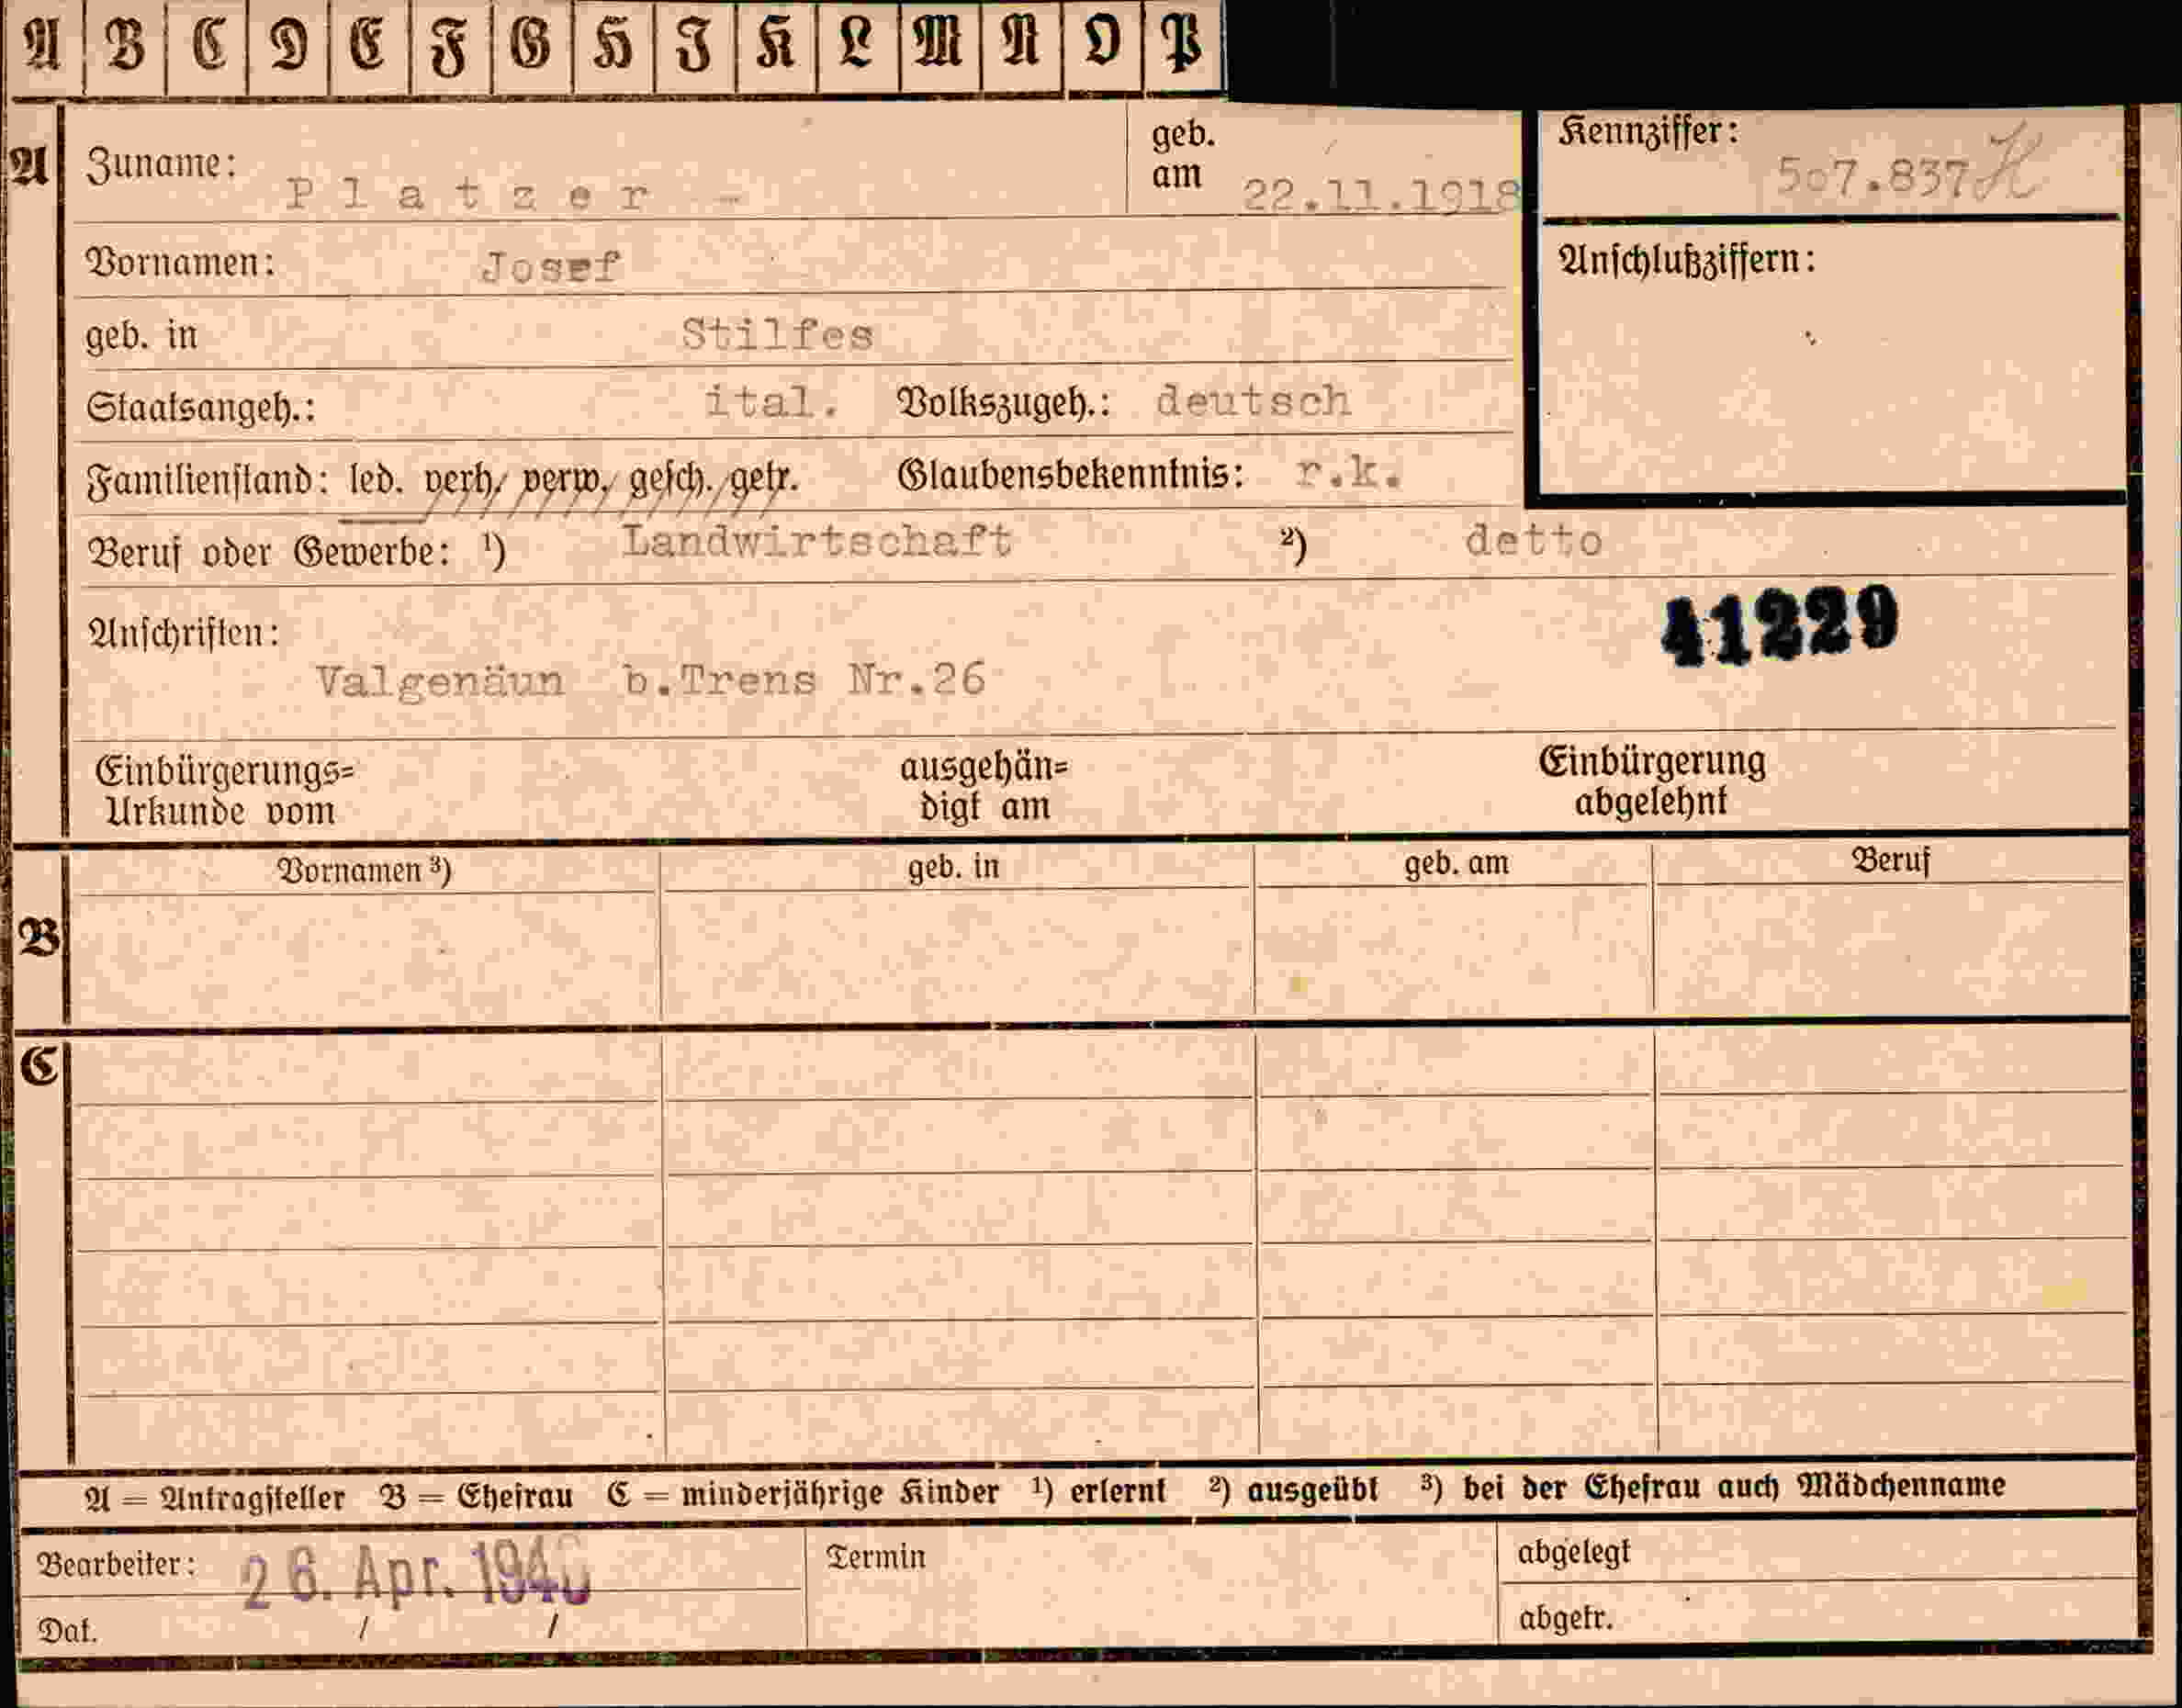 A B C D E F G H J K L M N O P
A Zuname: Platzer - geb. am 22.11.1918 Kennziffer: 507.837 H
Vornamen: Josef Anschlußziffern:
geb. in Stilfes
Staatsangeh.: ital. Volkszugeh.: deutsch
Familienstand: led. verh. verw. gesch. getr. Glaubensbekenntnis: r.k.
Beruf oder Gewerbe: ¹) Landwirtschaft ²) detto
41229
Anschriften:
Valgenäun b.Trens Nr.26
Einbürgerungs= ausgehän= Einbürgerung
Urkunde vom digt am abgelehnt
Vornamen ³) geb. in geb. am Beruf
B
C
A = Antragsteller B = Ehefrau C = minderjährige Kinder ¹) erlernt ²) ausgeübt ³) bei der Ehefrau auch Mädchenname
Bearbeiter: 26. Apr. 1940 Termin abgelegt
Dat. / / abgetr.